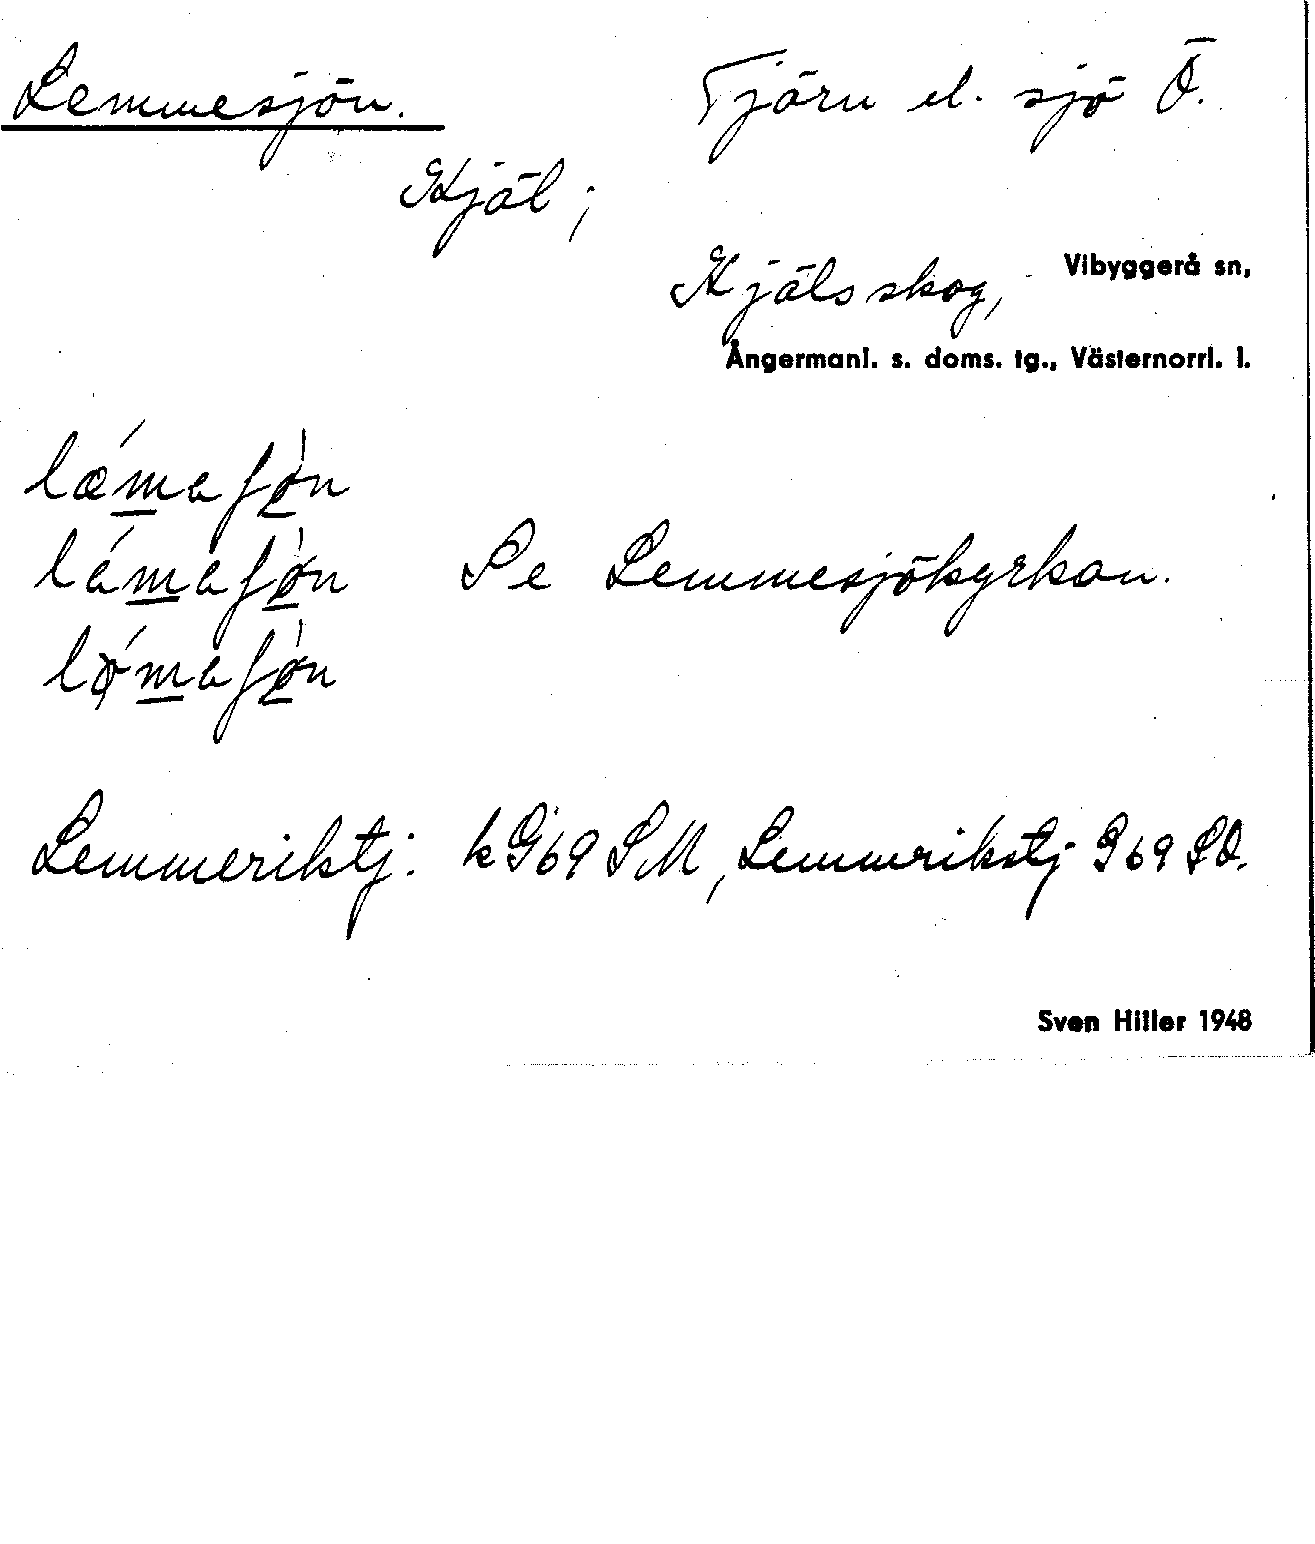 Lemmesjön. Tjärn el. sjö Ö.
Kjäl;
Kjälsskog, Vibyggerå sn,
Ångermanl. s. doms. tg., Västernorrl. l.
Se Lemmesjökyrkan.
Lemmeriktj: k G69 SM, Lemmrikstj G69 SO.
Sven Hiller 1948